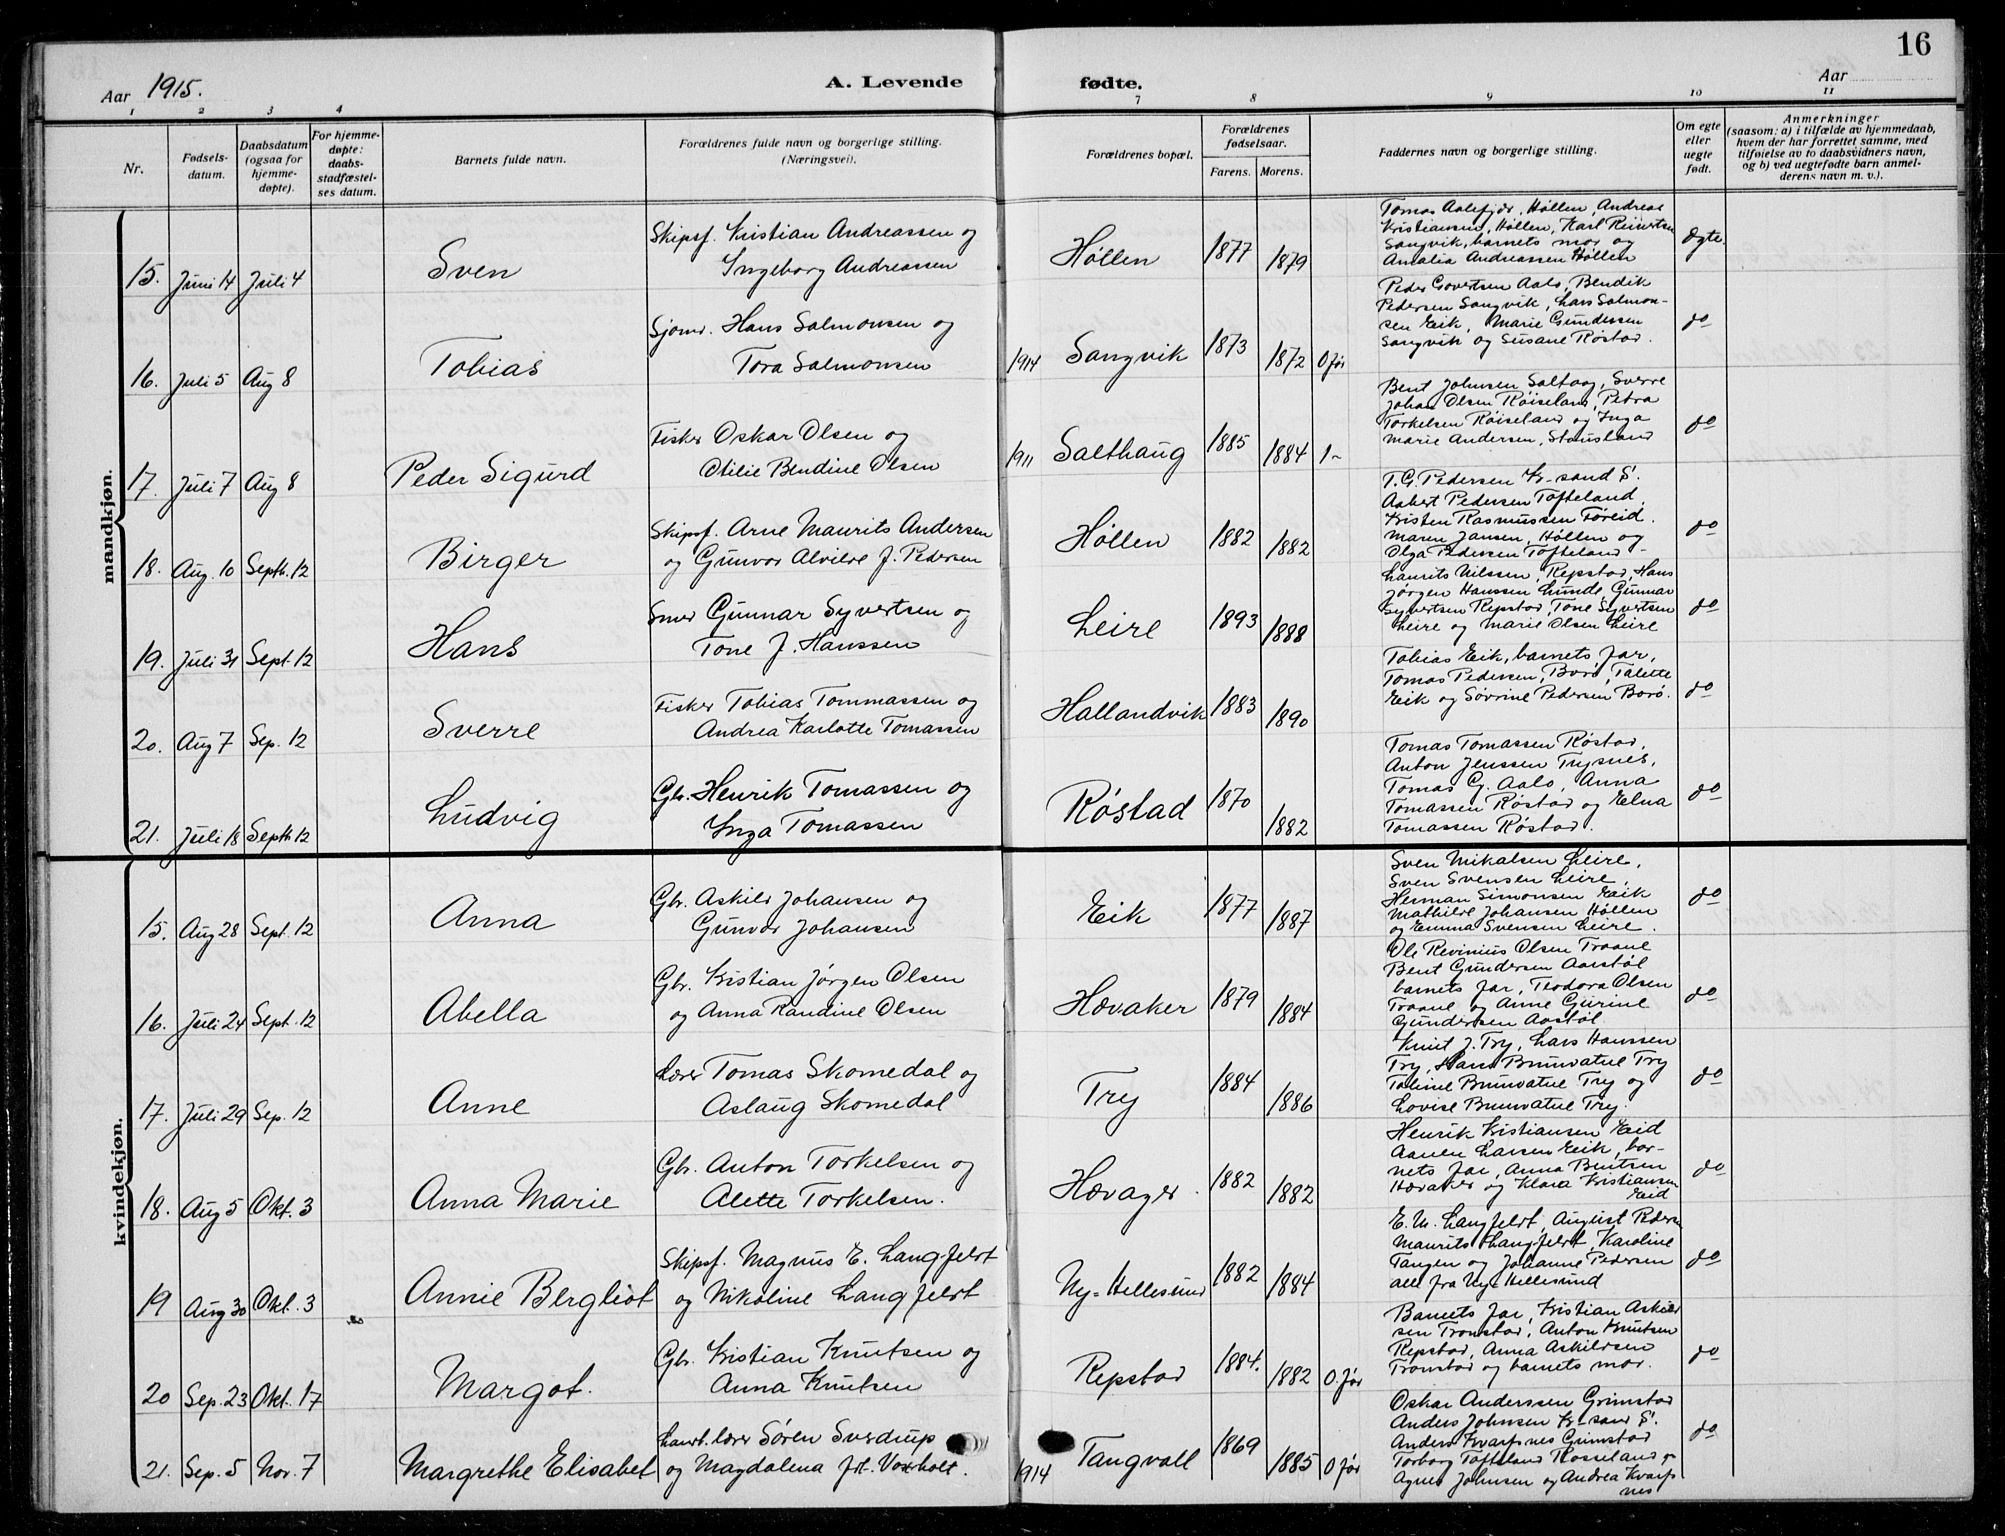 16
Aar 1915.
A. Levende fødte.
Aar
1 2 3 4 7 8 9 10 11
Nr.
Fødsels-
datum.
Daabsdatum
(ogsaa for
hjemme-
døpte).
For hjemme-
døpte:
daabs-
stadfæstel-
ses datum.
Barnets fulde navn.
Forældrenes fulde navn og borgerlige stilling.
(Næringsvei).
Forældrenes bopæl.
Forældrenes
fødselsaar.
Farens. Morens.
Faddernes navn og borgerlige stilling.
Om egte
eller
uegte
født.
Anmerkninger
(saasom: a) i tilfælde av hjemmedaab,
hvem der har forrettet samme, med
tilføielse av to daabsvidners navn,
og b) ved uegtefødte barn anmel-
derens navn m. v.).
mandkjøn.
15. Juni 14 Juli 4 Sven
Skipsf. Kristian Andreassen og
Ingeborg Andreassen
Høllen 1877 1879
Tomas Aalefjær, Høllen, Andreas
Kristiansen, Høllen, Karl Reinertsen
Sangvik, barnets mor og
Amalia Andreassen Høllen
Ægte.
16. Juli 5 Aug 8 Tobias
Sjømd. Hans Salmonsen og
Tora Salmonsen
1914 Sangvik 1873 1872 0 før
Peder Govertsen Aalo, Bendik
Pedersen Sangvik, Lars Salmon-
sen Eik, Marie Gundersen
Sangvik og Susane Røstad.
do
17. Juli 7 Aug 8 Peder Sigurd
Fisker Oskar Olsen og
Otilie Bendine Olsen
1911 Salthaug 1885 1884 1 -
Bent Johnsen Saltaag, Sverre
Johan Olsen Røiseland, Petra
Torkelsen Røiseland og Inga
Marie Andersen, Stausland
do
18. Aug. 10 Septb. 12 Birger
Skipsf. Arne Maurits Andersen
og Gunvor Alvilde J. Pedersen
Høllen 1882 1882
T. G. Pedersen Kr-sand S.
Aabert Pedersen Tofteland,
Kristen Rasmussen Føreid.
Maren Jansen, Høllen og
Olga Pedersen Tofteland -
do
19. Juli 31 Sept. 12 Hans
Smed Gunnar Syvertsen og
Tone J. Hanssen
Leire 1893 1888
Laurits Nilssen, Repstad, Hans
Jørgen Hanssen Lunde Gunnar
Syvertsen Repstad, Tone Syvertsen
Leire og Marie Olsen Leire
do
20. Aug 7 Sep. 12 Sverre
Fisker Tobias Tommassen og
Andrea Karlotte Tomassen
Hallandvik 1883 1890
Tobias Eik, barnets far,
Tomas Pedersen, Borø, Talette
Eik og Sørine Pedersen Borø.
do
21. Juli 18 Septb 12 Ludvig
Gbr. Henrik Tomassen og
Inga Tomassen
Røstad 1870 1882
Tomas Tomassen Røstad,
Anton Jenssen Trysnes,
Tomas G. Aalo, Anna
Tomassen Røstad og Elna
Tomassen Røstad.
do
kvindekjøn.
15. Aug 28 Sept. 12 Anna
Gbr. Askild Johansen og
Gunvor Johansen
Eik 1877 1887
Sven Mikalsen Leire,
Sven Svensen Leire,
Herman Simonsen Eik
Mathilde Johansen Høllen
og Emma Svensen Leire.
do
16. Juli 24 Sept. 12 Abella
Gbr. Kristian Jørgen Olsen
og Anna Randine Olsen
Hævaker 1879 1884
Ole Revinius Olsen Traane
Bent Gundersen Aarstøl
barnets far, Teodora Olsen
Traane og Anne Gurine
Gundersen Aastøl
do
17. Juli 29 Sep. 12 Anne
Lærer Tomas Skomedal og
Aslaug Skomedal
Try 1884 1886
Knut J. Try, Lars Hanssen
Try, Hans Brunvatne Try
Taline Brunvatne Try og
Lovise Brunvatne Try.
do
18. Aug 5 Okt. 3 Anna Marie
Gbr. Anton Torkelsen og
Alette Torkelsen.
Hævager. 1882 1882
Henrik Kristiansen Eid
Aanen Larsen Eik, bar-
nets far, Anna Bentsen
Hævaker og Klara Kristiansen
Eid
do
19 Aug 30 Okt. 3 Annie Bergliot
Skipsf. Magnus E. Langfeldt
og Nikoline Langfeldt
Ny-Hellesund 1882 1884
E. M. Langfeldt, August Peders
Maurits Langfeldt, Karoline
Tangen og Johanne Pedersen
alle fra Ny-Hellesund
do
20 Sep. 23 Okt. 17 Margot.
Gbr. Kristian Knutsen og
Anna Knutsen
Repstad 1884. 1882 0. før
Barnets far, Kristian Askild
sen Tronstad, Anton Knutsen
Repstad, Anna Askildsen
Tronstad og barnets mor.
do
21. Sep. 5 Nov. 7 Margrethe Elisabet
Landb. lærer Søren Sverdrup
og Magdalena f. Voxholt.
1914 Tangvall 1869 1885 0 før
Oskar Anderssen Grimstad
Anders Johnsen Kr-sand S.
Anders Kvarsnes Grimstad
Torborg Tofteland Røseland og
Agnes Johnsen og Andrea Kvars
nes
do